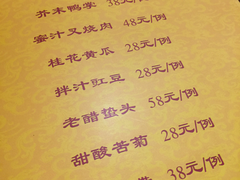 芥末鸭掌 38元/例
蜜汁叉烧肉 48元/例
桂花黄瓜 28元/例
拌汁豇豆 28元/例
老醋蛰头 58元/例
甜酸苦菊 28元/例
38元/例